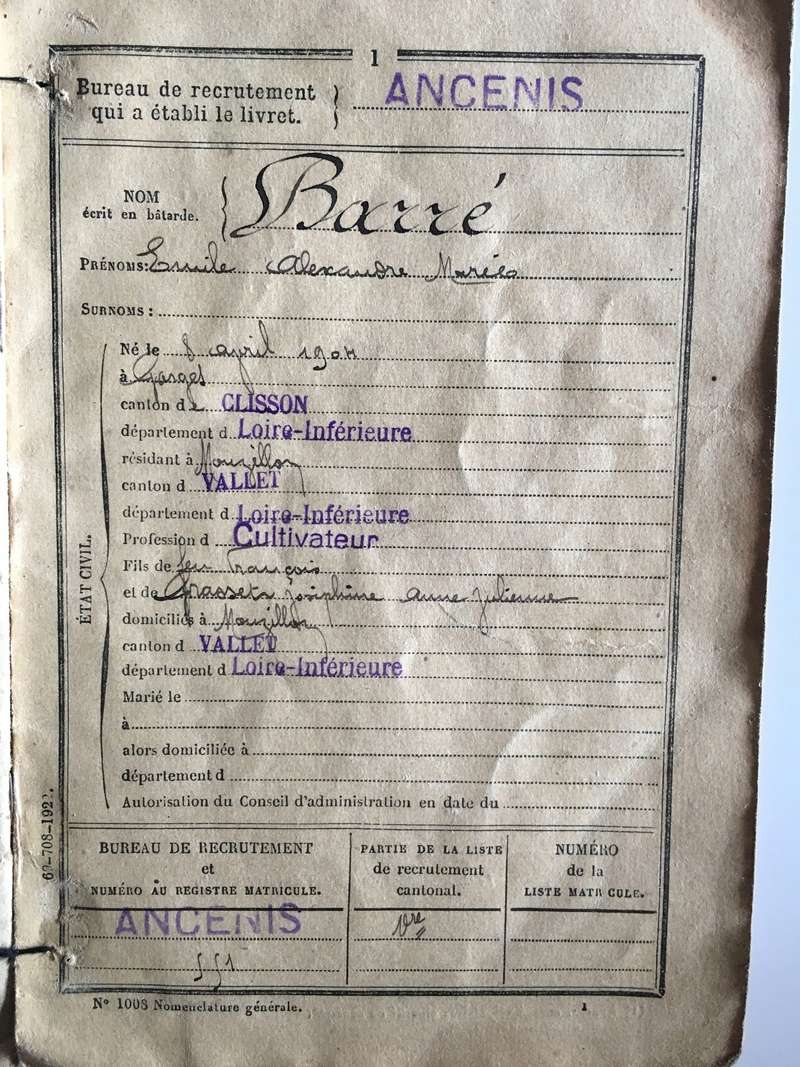 1
Bureau de recrutement
qui a établi le livret.
ANCENIS
NOM
écrit en bâtarde.
Barré
PRÉNOMS: Emile Alexandre Marie
SURNOMS :
ÉTAT CIVIL.
Né le 8 avril 1904
à Gorges
canton de CLISSON
département d Loire-Inférieure
résidant à Mouzillon
canton d VALLET
département d Loire-Inférieure
Profession d Cultivateur
Fils de feu François
et de Grasset Joséphine Anne Julienne
domiciliés à Mouzillon
canton d VALLET
département d Loire-Inférieure
Marié le
à
alors domiciliée à
département d
Autorisation du Conseil d'administration en date du
BUREAU DE RECRUTEMENT
et
NUMÉRO AU REGISTRE MATRICULE.
ANCENIS
551
PARTIE DE LA LISTE
de recrutement
cantonal.
1re
NUMÉRO
de la
LISTE MATRICULE.
N° 1008 Nomenclature générale.
1